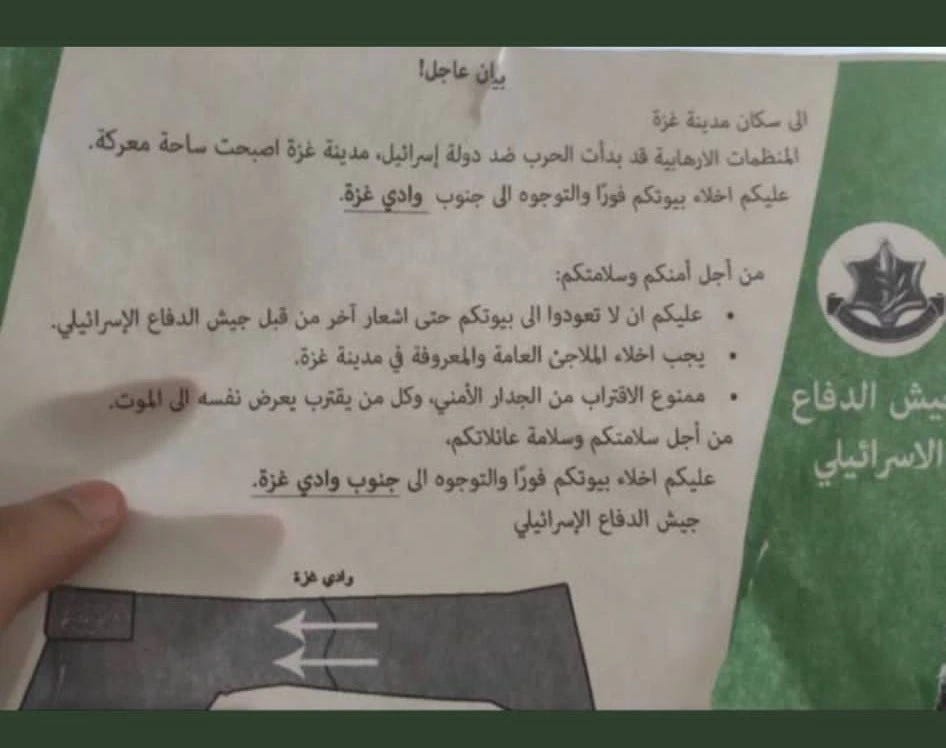 بيان عاجل!
الى سكان مدينة غزة
المنظمات الارهابية قد بدأت الحرب ضد دولة إسرائيل، مدينة غزة اصبحت ساحة معركة.
عليكم اخلاء بيوتكم فورًا والتوجوه الى جنوب وادي غزة.
من أجل أمنكم وسلامتكم:
• عليكم ان لا تعودوا الى بيوتكم حتى اشعار آخر من قبل جيش الدفاع الإسرائيلي.
• يجب اخلاء الملاجئ العامة والمعروفة في مدينة غزة.
• ممنوع الاقتراب من الجدار الأمني، وكل من يقترب يعرض نفسه الى الموت.
من أجل سلامتكم وسلامة عائلاتكم،
عليكم اخلاء بيوتكم فورًا والتوجوه الى جنوب وادي غزة.
جيش الدفاع الإسرائيلي
وادي غزة
يش الدفاع
الاسرائيلي